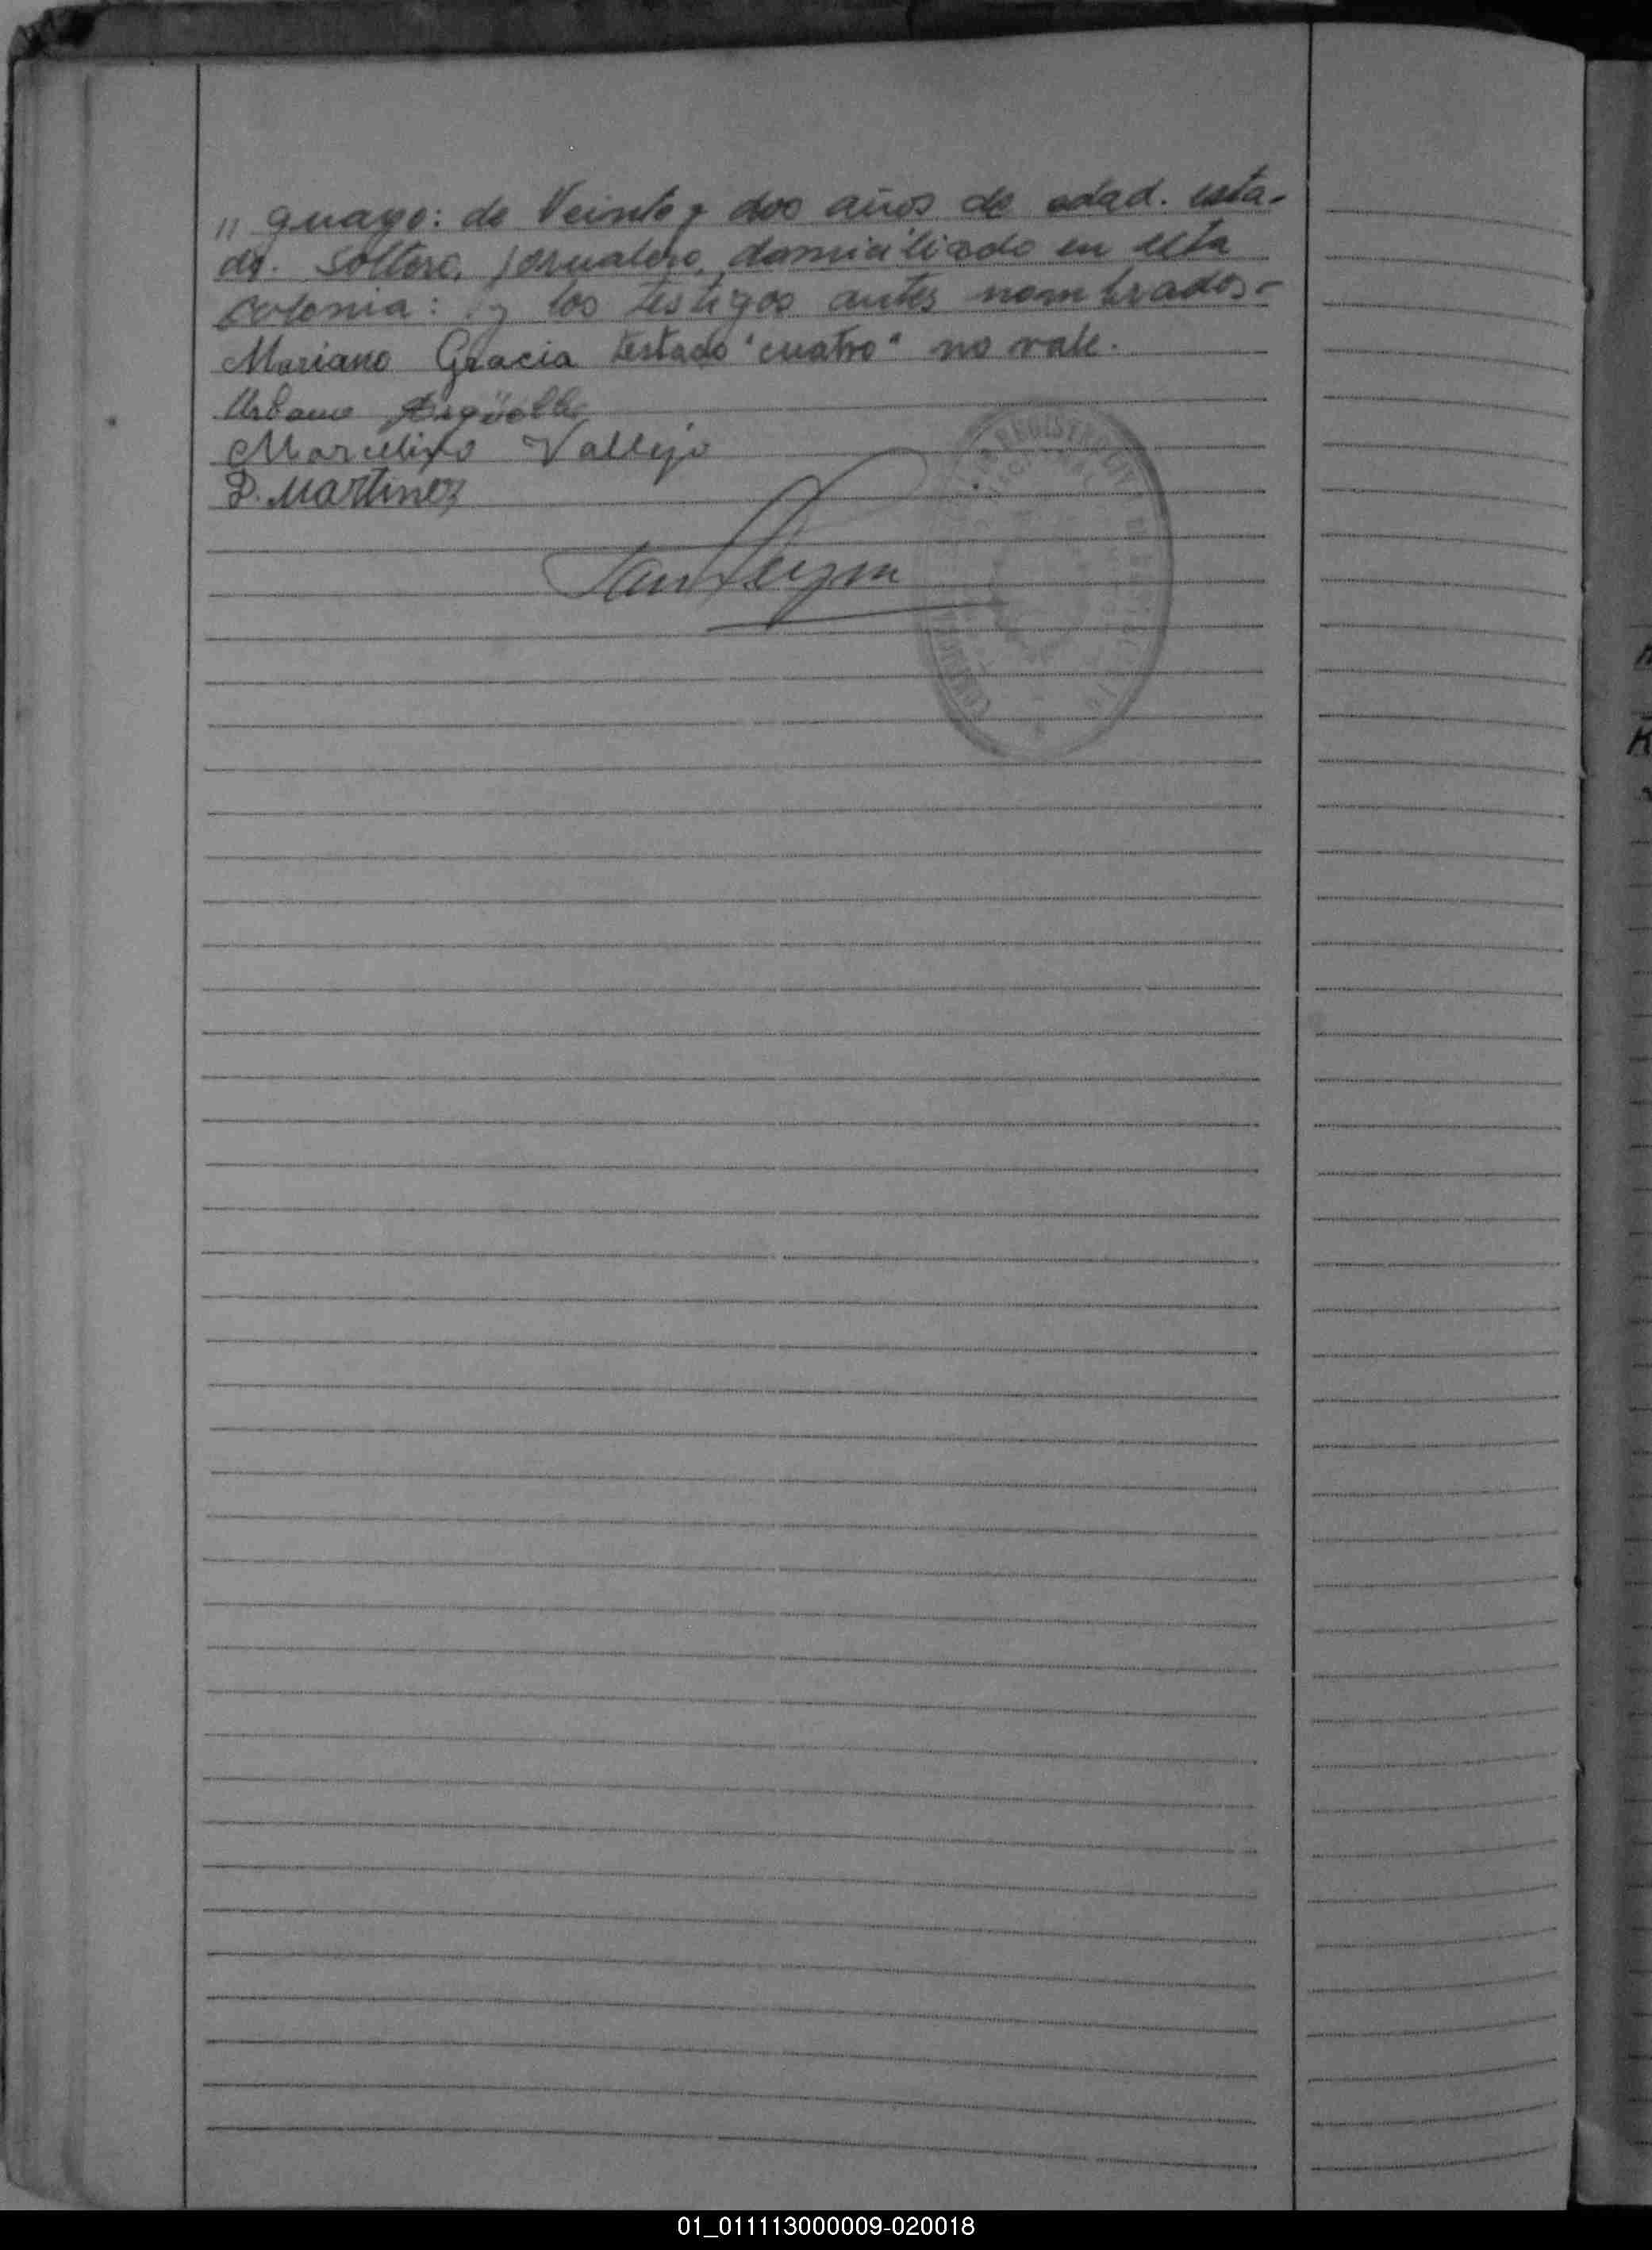 " guayo: de Veinte y dos años de edad. esta-
do. Soltero, jornalero, domiciliado en esta
colonia: y los testigos antes nombrados-
Mariano Gracia testado "cuatro" no vale.
Urbano Argüelle
Marcelino Vallejo
P. Martinez
REGISTRO CIVIL
01_011113000009-020018